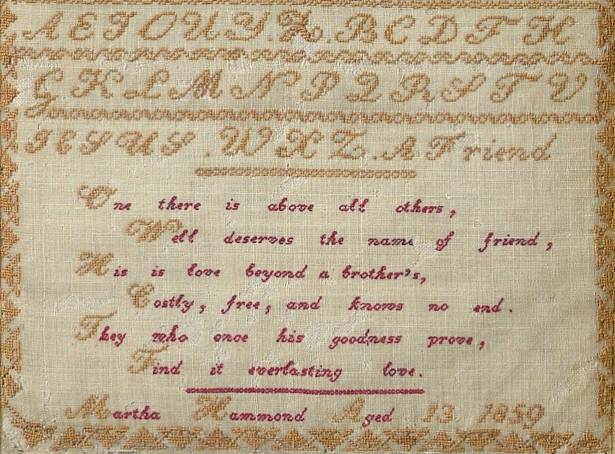 A E I O U Y . Z . B C D F H
G K L M N P Q R S T V
JESUS . W X Z . A Friend
One there is above all others,
Well deserves the name of friend,
His is love beyond a brother's,
Costly, free, and knows no end.
They who once his goodness prove,
Find it everlasting love.
Martha Hammond Aged 13 1859